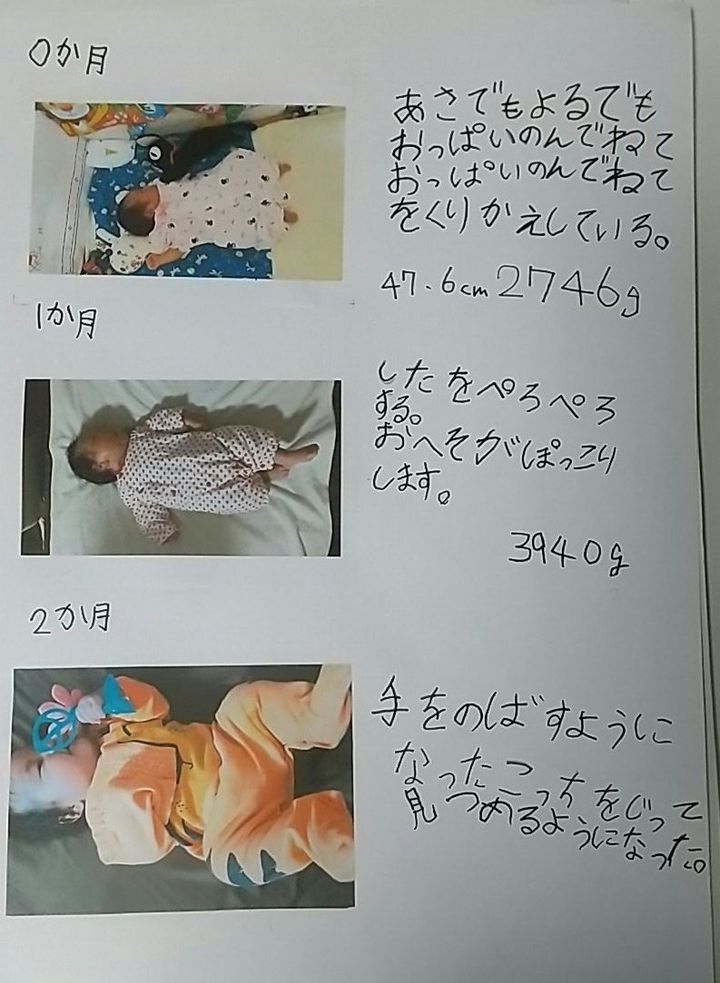 0か月
あさでもよるでも
おっぱいのんでねて
おっぱいのんでねて
をくりかえしている。
47.6cm 2746g
1か月
したをぺろぺろ
する。
おへそがぽっこり
します。
3940g
2か月
手をのばすように
なったこっちをじって
見つめるようになった。